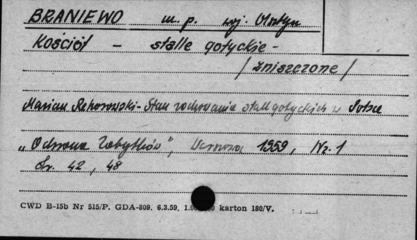 BRANIEWO m. p. woj. Olsztyn
Kościół - stalle gotyckie -
/zniszczone/
Marian Rehorowski - Stan zachowania stall gotyckich w Polsce
„Ochrona Zabytków", Warszawa 1959, Nr. 1
Str. 42, 48
CWD B-15b Nr 515/P. GDA-809. 6.3.59. karton 180/V.